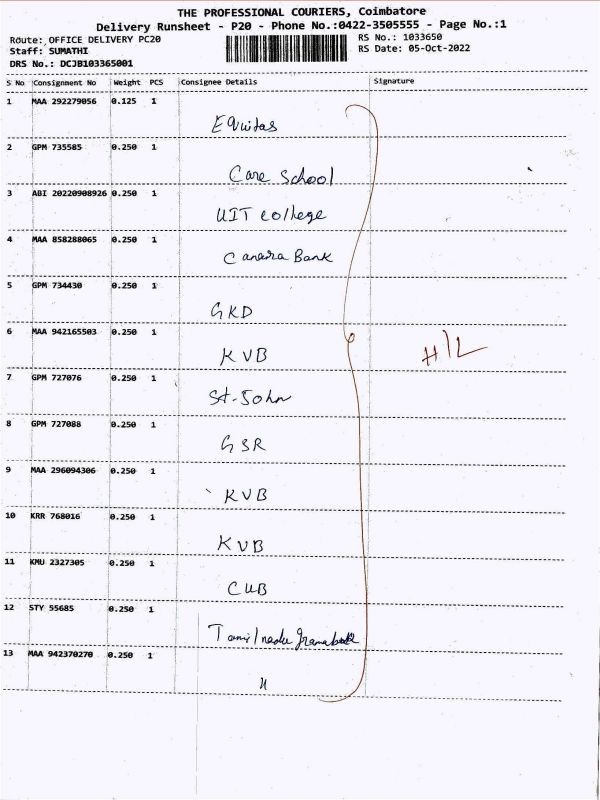 THE PROFESSIONAL COURIERS, Coimbatore
Delivery Runsheet - P20 - Phone No.:0422-3505555 - Page No.:1
Route: OFFICE DELIVERY PC20
RS No.: 1033650
Staff: SUMATHI
RS Date: 05-Oct-2022
DRS No.: DCJB103365001
S No Consignment No Weight PCS Consignee Details Signature
1 MAA 292279056 0.125 1
Equitas
2 GPM 735585 0.250 1
Care School
3 ABI 20220908926 0.250 1
UIT college
4 MAA 858288065 0.250 1
Canara Bank
5 GPM 734430 0.250 1
GKD
6 MAA 942165503 0.250 1
KVB
H/L
7 GPM 727076 0.250 1
St-John
8 GPM 727088 0.250 1
GSR
9 MAA 296094306 0.250 1
KVB
10 KRR 768016 0.250 1
KVB
11 KMU 2327305 0.250 1
CUB
12 STY 55685 0.250 1
Tamilnadu
13 MAA 942370270 0.250 1
"